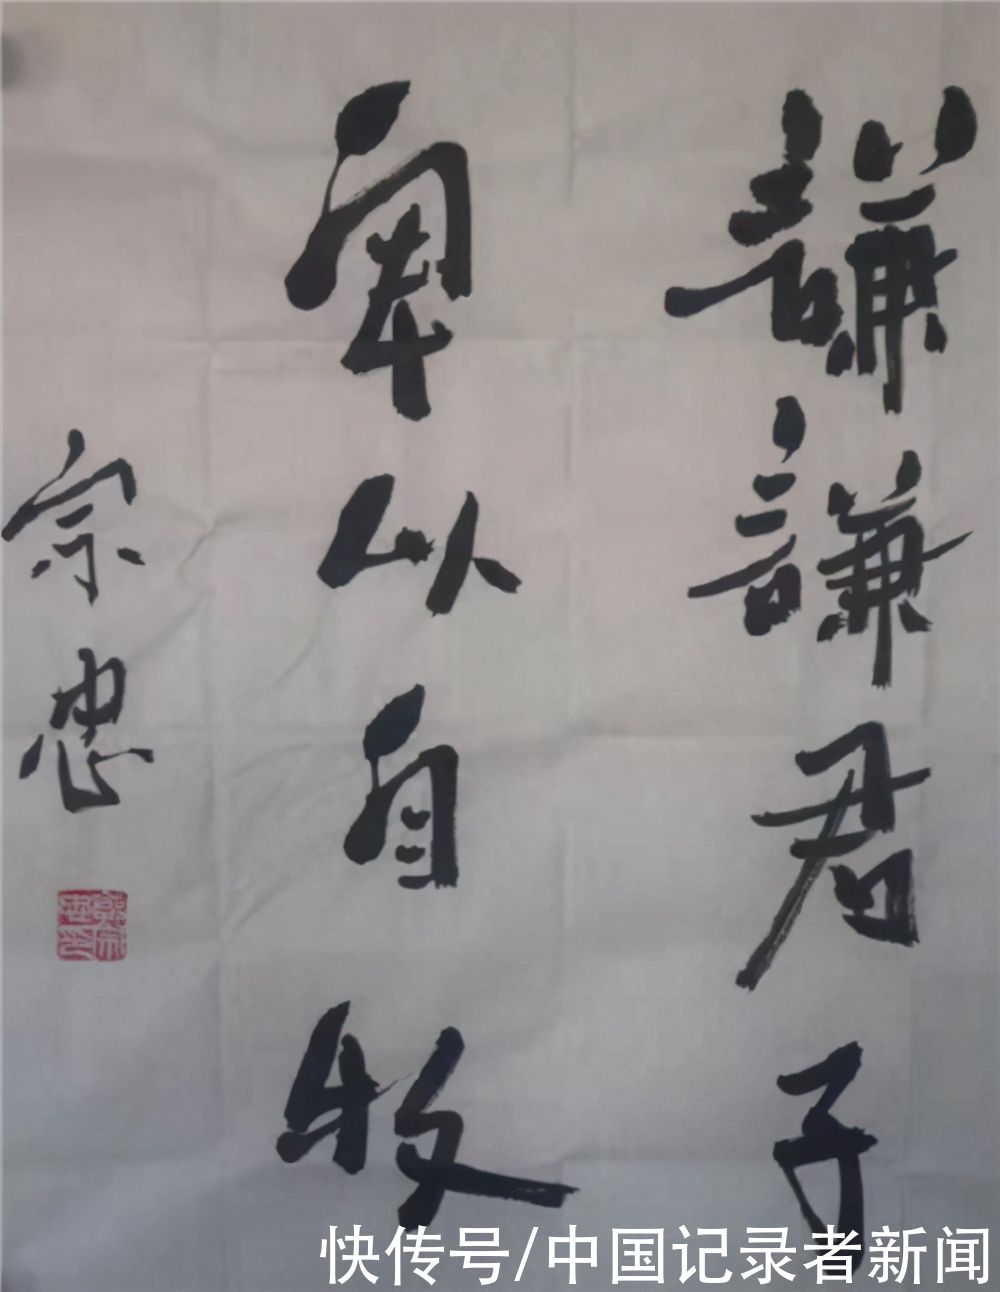 謙謙君子
卑以自牧
宗忠
快传号/中国记录者新闻